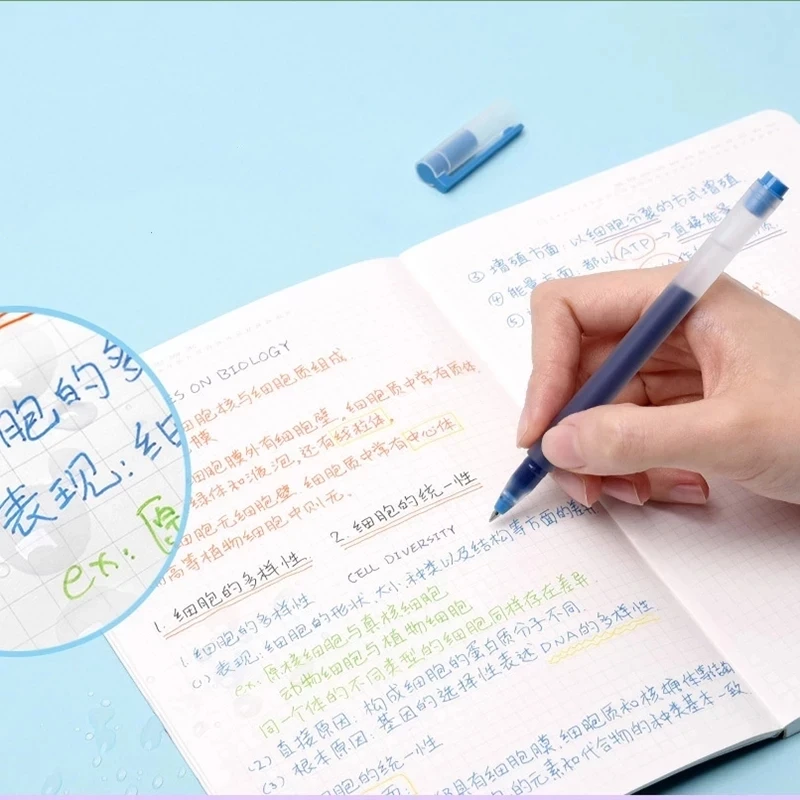 ES ON BIOLOGY
细胞核与细胞质组成
膜
细胞膜外有细胞壁，细胞质中常有质体，
绿体和液泡，还有线粒体，
细胞无细胞壁，细胞质中常有中心体
高等植物细胞中则无.
1. 细胞的多样性
2. 细胞的统一性
CELL DIVERSITY
1. 细胞的多样性
(1) 表现: 细胞的形状、大小、种类以及结构等方面的差异
ex: 原核细胞与真核细胞
动物细胞与植物细胞
同一个体的不同类型的细胞同样存在差异.
(2) 直接原因: 构成细胞的蛋白质分子不同.
(3) 根本原因: 基因的选择性表达 DNA的多样性
细胞的统一性
面: 具有细胞膜、细胞质和核糖体等结构
的元素和化合物的种类基本一致
③ 增殖方面: 以细胞分裂的方式增殖.
④ 能量方面: 都以ATP → 直接能量
⑤
胞的多
表现: 细
ex: 原